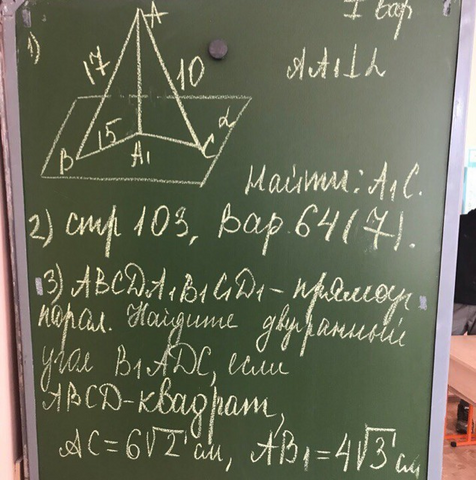 I вар
1)
A
17
10
AA₁⊥α
15
α
B
A₁
C
Найти: A₁C.
2) стр 103, Вар 64(7).
3) ABCDA₁B₁C₁D₁ - прямоуг
парал. Найдите двугранный
угол B₁ADC, если
ABCD-квадрат,
AC = 6√2 см, AB₁ = 4√3 см